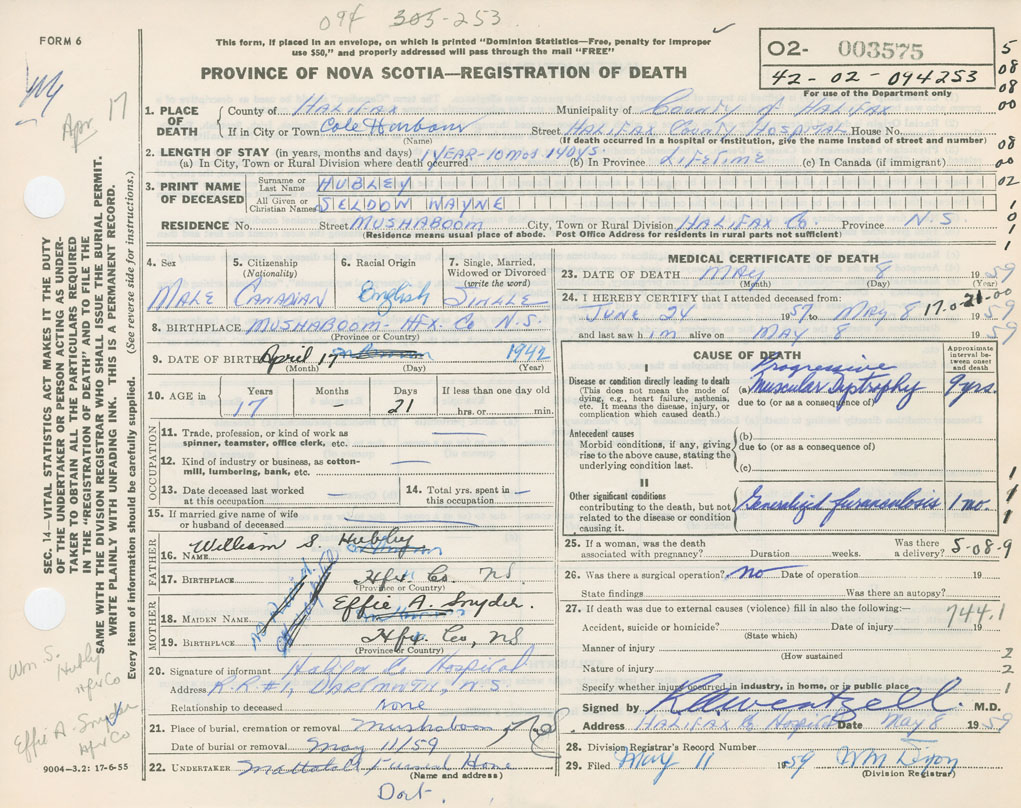 094 303-253
FORM 6
This form, if placed in an envelope, on which is printed "Dominion Statistics—Free, penalty for improper
use $50," and properly addressed will pass through the mail "FREE"
PROVINCE OF NOVA SCOTIA—REGISTRATION OF DEATH
O2- 003575
42-02-094253
For use of the Department only
5
08
08
00
08
00
02
1
0
1
1
Apr 17
SEC. 14—VITAL STATISTICS ACT MAKES IT THE DUTY
OF THE UNDERTAKER OR PERSON ACTING AS UNDER-
TAKER TO OBTAIN ALL THE PARTICULARS REQUIRED
IN THE "REGISTRATION OF DEATH" AND TO FILE THE
SAME WITH THE DIVISION REGISTRAR WHO SHALL ISSUE THE BURIAL PERMIT.
WRITE PLAINLY WITH UNFADING INK. THIS IS A PERMANENT RECORD.
Every item of information should be carefully supplied. (See reverse side for instructions.)
1. PLACE OF DEATH County of Halifax Municipality of County of Halifax
If in City or Town Cole Harbour Street Halifax County Hospital House No.
(Name) (If death occurred in a hospital or institution, give the name instead of street and number)
2. LENGTH OF STAY (in years, months and days)
(a) In City, Town or Rural Division where death occurred 1 YEAR-10 mos 14 DYS. (b) In Province LIFETIME (c) In Canada (if immigrant)
3. PRINT NAME OF DECEASED
Surname or Last Name HUBLEY
All Given or Christian Names SELDON WAYNE
RESIDENCE No. Street MUSHABOOM City, Town or Rural Division HALIFAX Co. Province N.S
(Residence means usual place of abode. Post Office Address for residents in rural parts not sufficient)
4. Sex 5. Citizenship (Nationality) 6. Racial Origin 7. Single, Married, Widowed or Divorced (write the word)
MALE CANADIAN English SINGLE
8. BIRTHPLACE MUSHABOOM- HFX. Co N.S.
(Province or Country)
9. DATE OF BIRTH April 17 1942
(Month) (Day) (Year)
10. AGE in Years Months Days If less than one day old
17 — 21 hrs. or min.
OCCUPATION
11. Trade, profession, or kind of work as spinner, teamster, office clerk, etc. —
12. Kind of industry or business, as cotton-mill, lumbering, bank, etc. —
13. Date deceased last worked at this occupation — 14. Total yrs. spent in this occupation —
15. If married give name of wife or husband of deceased —
FATHER
16. NAME William S. Hubley
17. BIRTHPLACE Hfx Co. NS
(Province or Country)
MOTHER
18. MAIDEN NAME Effie A. Snyder.
19. BIRTHPLACE Hfx Co, NS
(Province or Country)
20. Signature of informant Halifax Co Hospital
Address R.R #1, DARTMOUTH, N.S.
Relationship to deceased none
21. Place of burial, cremation or removal Mushaboom
Date of burial or removal May 11/59
22. UNDERTAKER Mattatall Funeral Home
(Name and address)
Dart.
Wm S. Hubley
Hfx Co
Effie A. Snyder
Hfx Co
9004-3.2: 17-6-55
MEDICAL CERTIFICATE OF DEATH
23. DATE OF DEATH MAY 8 1959
(Month) (Day) (Year)
24. I HEREBY CERTIFY that I attended deceased from:
JUNE 24 1957 to May 8 1959
17.0-21-00
and last saw him alive on MAY 8 1959
CAUSE OF DEATH
Approximate interval between onset and death
I
Disease or condition directly leading to death
(This does not mean the mode of dying, e.g., heart failure, asthenia, etc. It means the disease, injury, or complication which caused death.)
(a) Progressive Muscular Dystrophy 9 yrs.
due to (or as a consequence of)
Antecedent causes
Morbid conditions, if any, giving rise to the above cause, stating the underlying condition last.
(b)
due to (or as a consequence of)
(c)
II
Other significant conditions contributing to the death, but not related to the disease or condition causing it.
Generalized furunculosis 1 mo.
1
1
1
25. If a woman, was the death associated with pregnancy? Duration weeks. Was there a delivery?
5-08-9
26. Was there a surgical operation? no Date of operation 19
State findings Was there an autopsy?
27. If death was due to external causes (violence) fill in also the following:—
744.1
Accident, suicide or homicide? Date of injury 19
(State which)
Manner of injury 2
(How sustained
Nature of injury 2
Specify whether injury occurred in industry, in home, or in public place 1
Signed by M.D.
Address Halifax Co Hospital Date May 8 1959
28. Division Registrar's Record Number
29. Filed May 11 1959 Wm Dixon
(Division Registrar)